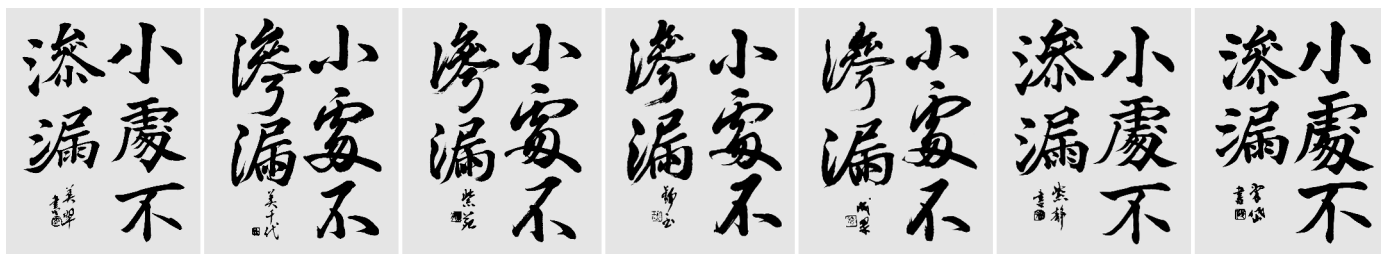 小處不
滲漏
美翠
書
小處不
滲漏
美千代
小處不
滲漏
紫苑
小處不
滲漏
小處不
滲漏
小處不
滲漏
紫靜
書
小處不
滲漏
書